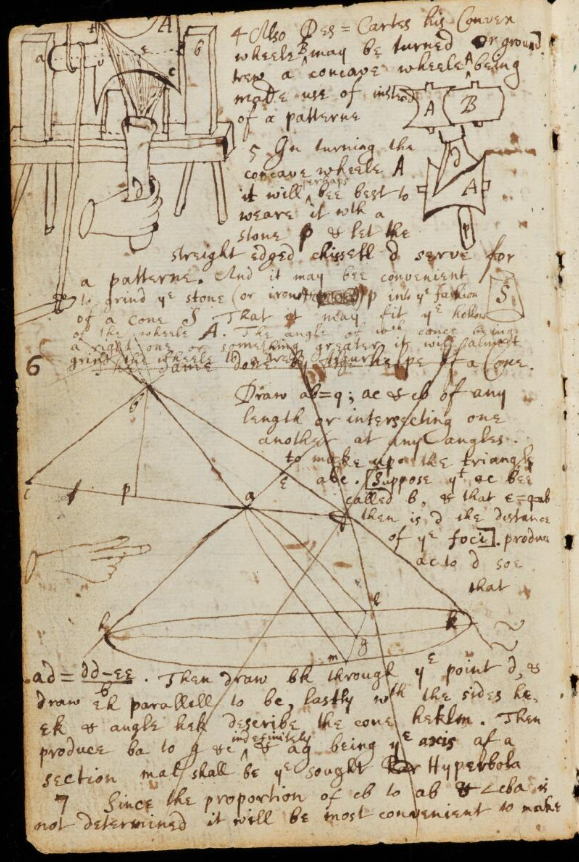 4 Also Des=Cartes his Convex
wheele B may be turned or ground
trew a concave wheele A being
made use of instead
of a patterne
5 In turning the
concave wheele A
it will perhaps bee best to
weare it wth a
stone p & let the
streight edged chissell d serve for
a patterne. And it may bee convenient
to grind ye stone (or iron) p into ye fashion
of a cone S. That it may fit ye hollow
of the wheele A. The angle of wch cone being
a right one or something greater it will almost
grind the wheele
6 The same done by the helpe of a Cone.
Draw ab=q; ac & cb of any
length or intersecting one
another at any angles.
to make upon the triangle
abc. [Suppose yt bc bee
called b, & that e=q=ab
then is d the distance
of ye foci]. produce
ac to d soe
that
ad = dd-ee/b. Then draw bk through ye point d, &
draw ek parallell to bc, lastly wth the sides he,
ek & angle hek describe the cone heklm. Then
produce ba to g indefinitely & ag being ye axis of a
section mal shall be ye sought for Hyperbola
7 Since the proportion of cb to ab & <cba is
not determined it will be most convenient to make
a
b
c
d
A
B
d
A
p
S
b
c
p
a
e
h
k
m
g